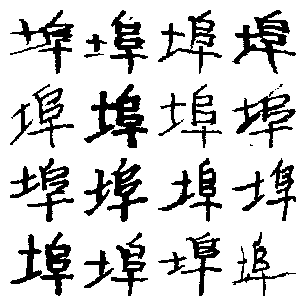 埠埠埠埠
埠埠埠埠
埠埠埠埠
埠埠埠埠